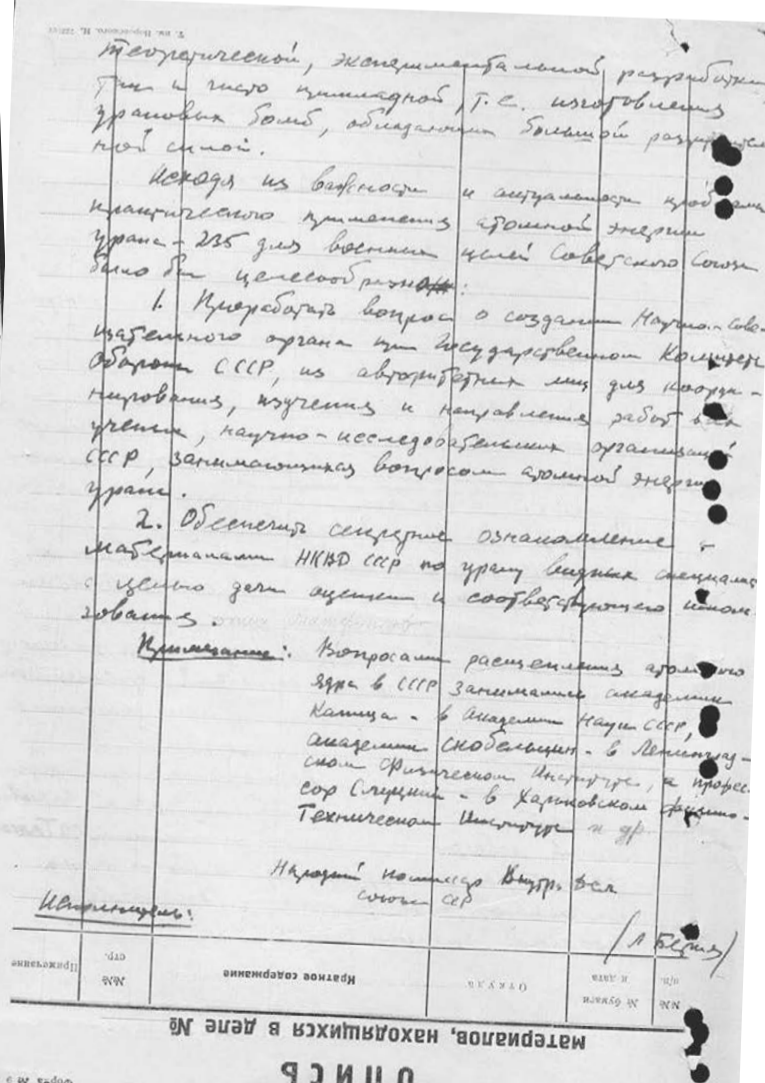 Т. им. Воровского, Н.
теоретической, экспериментальной разработки
так и чисто прикладной, т.е. изготовления
урановых бомб, обладающих большой разрушитель
ной силой.
Исходя из важности и актуальности проблемы
практического применения атомной энергии
урана-235 для военных целей Советского Союза
было бы целесообразно:
1. Проработать вопрос о создании Научно-Сове-
щательного органа при Государственном Комитете
Обороны СССР, из авторитетных лиц для коорди-
нирования, изучения и направления работ всех
ученых, научно-исследовательских организаций
СССР, занимающихся вопросом атомной энергии
урана.
2. Обеспечить секретное ознакомление с
материалами НКВД СССР по урану видных специалис
с целью дачи оценки и соответствующего исполь
зования.
Примечание: Вопросами расщепления атомного
ядра в СССР занимались академик
Капица - в Академии Наук СССР,
академик Скобельцин - в Ленинград-
ском Физическом Институте, и профес
сор Слуцкий - в Харьковском физико-
Техническом Институте и др.
Народный комиссар Внутр. Дел
Союза ССР
Исполнитель:
(Л Берия)
№№ п/п. № бумаги и дата Откуда Краткое содержание №№ стр. Примечание
материалов, находящихся в деле №
ОПИСЬ
Форма № 9